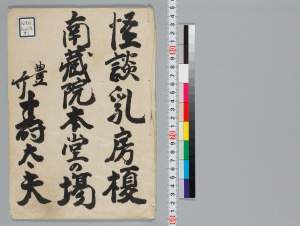 怪談乳房榎
南蔵院本堂の場
豊竹寿太夫